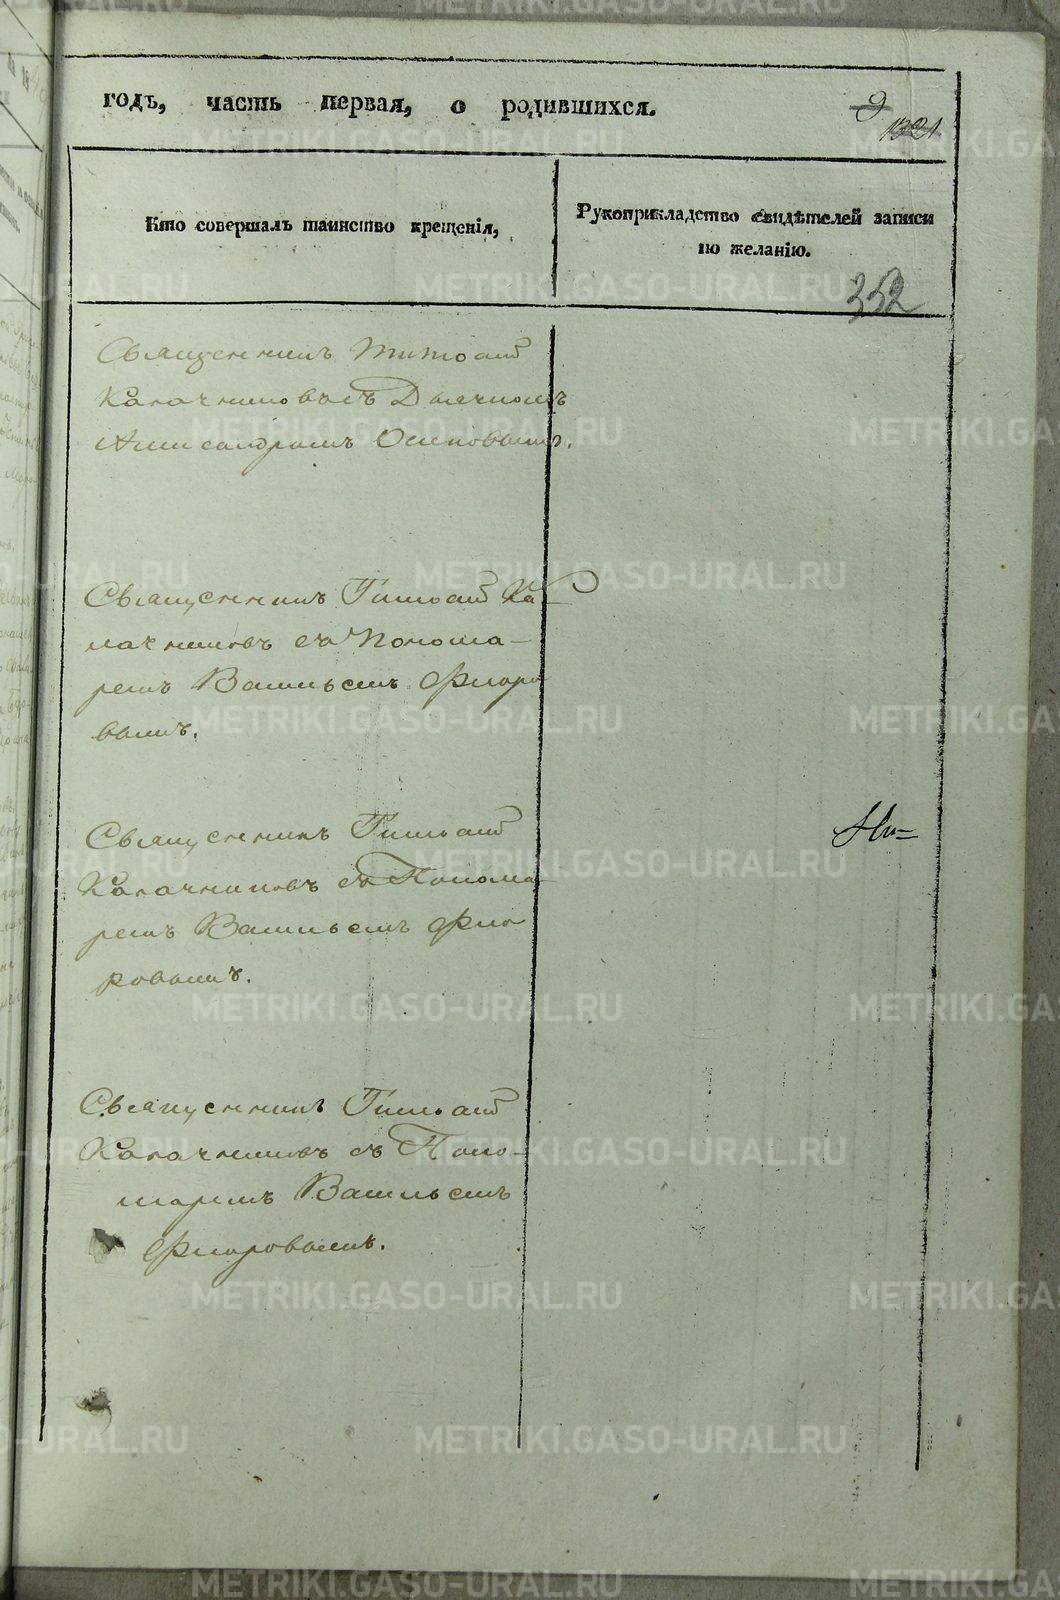 годъ, часть первая, о родившихся.
9
1321
Кто совершалъ таинство крещенія,
Рукоприкладство свидѣтелей записи
по желанію.
352
Священникъ Тимоѳей
Калачниковъ съ Дьячкомъ
Александромъ Осиповымъ.
Священникъ Тимоѳей Ка-
лачниковъ съ Понома-
ремъ Васильемъ Флоро
вымъ.
Священникъ Тимоѳей
Калачниковъ съ Понома
ремъ Васильемъ Фло
ровымъ.
Священникъ Тимоѳей
Калачниковъ съ Поно-
маремъ Васильемъ
Флоровымъ.
METRIKI.GASO-URAL.RU